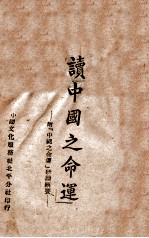 讀中國之命運
附「中國之命運」研讀綱要
中國文化服務社北平分社印行